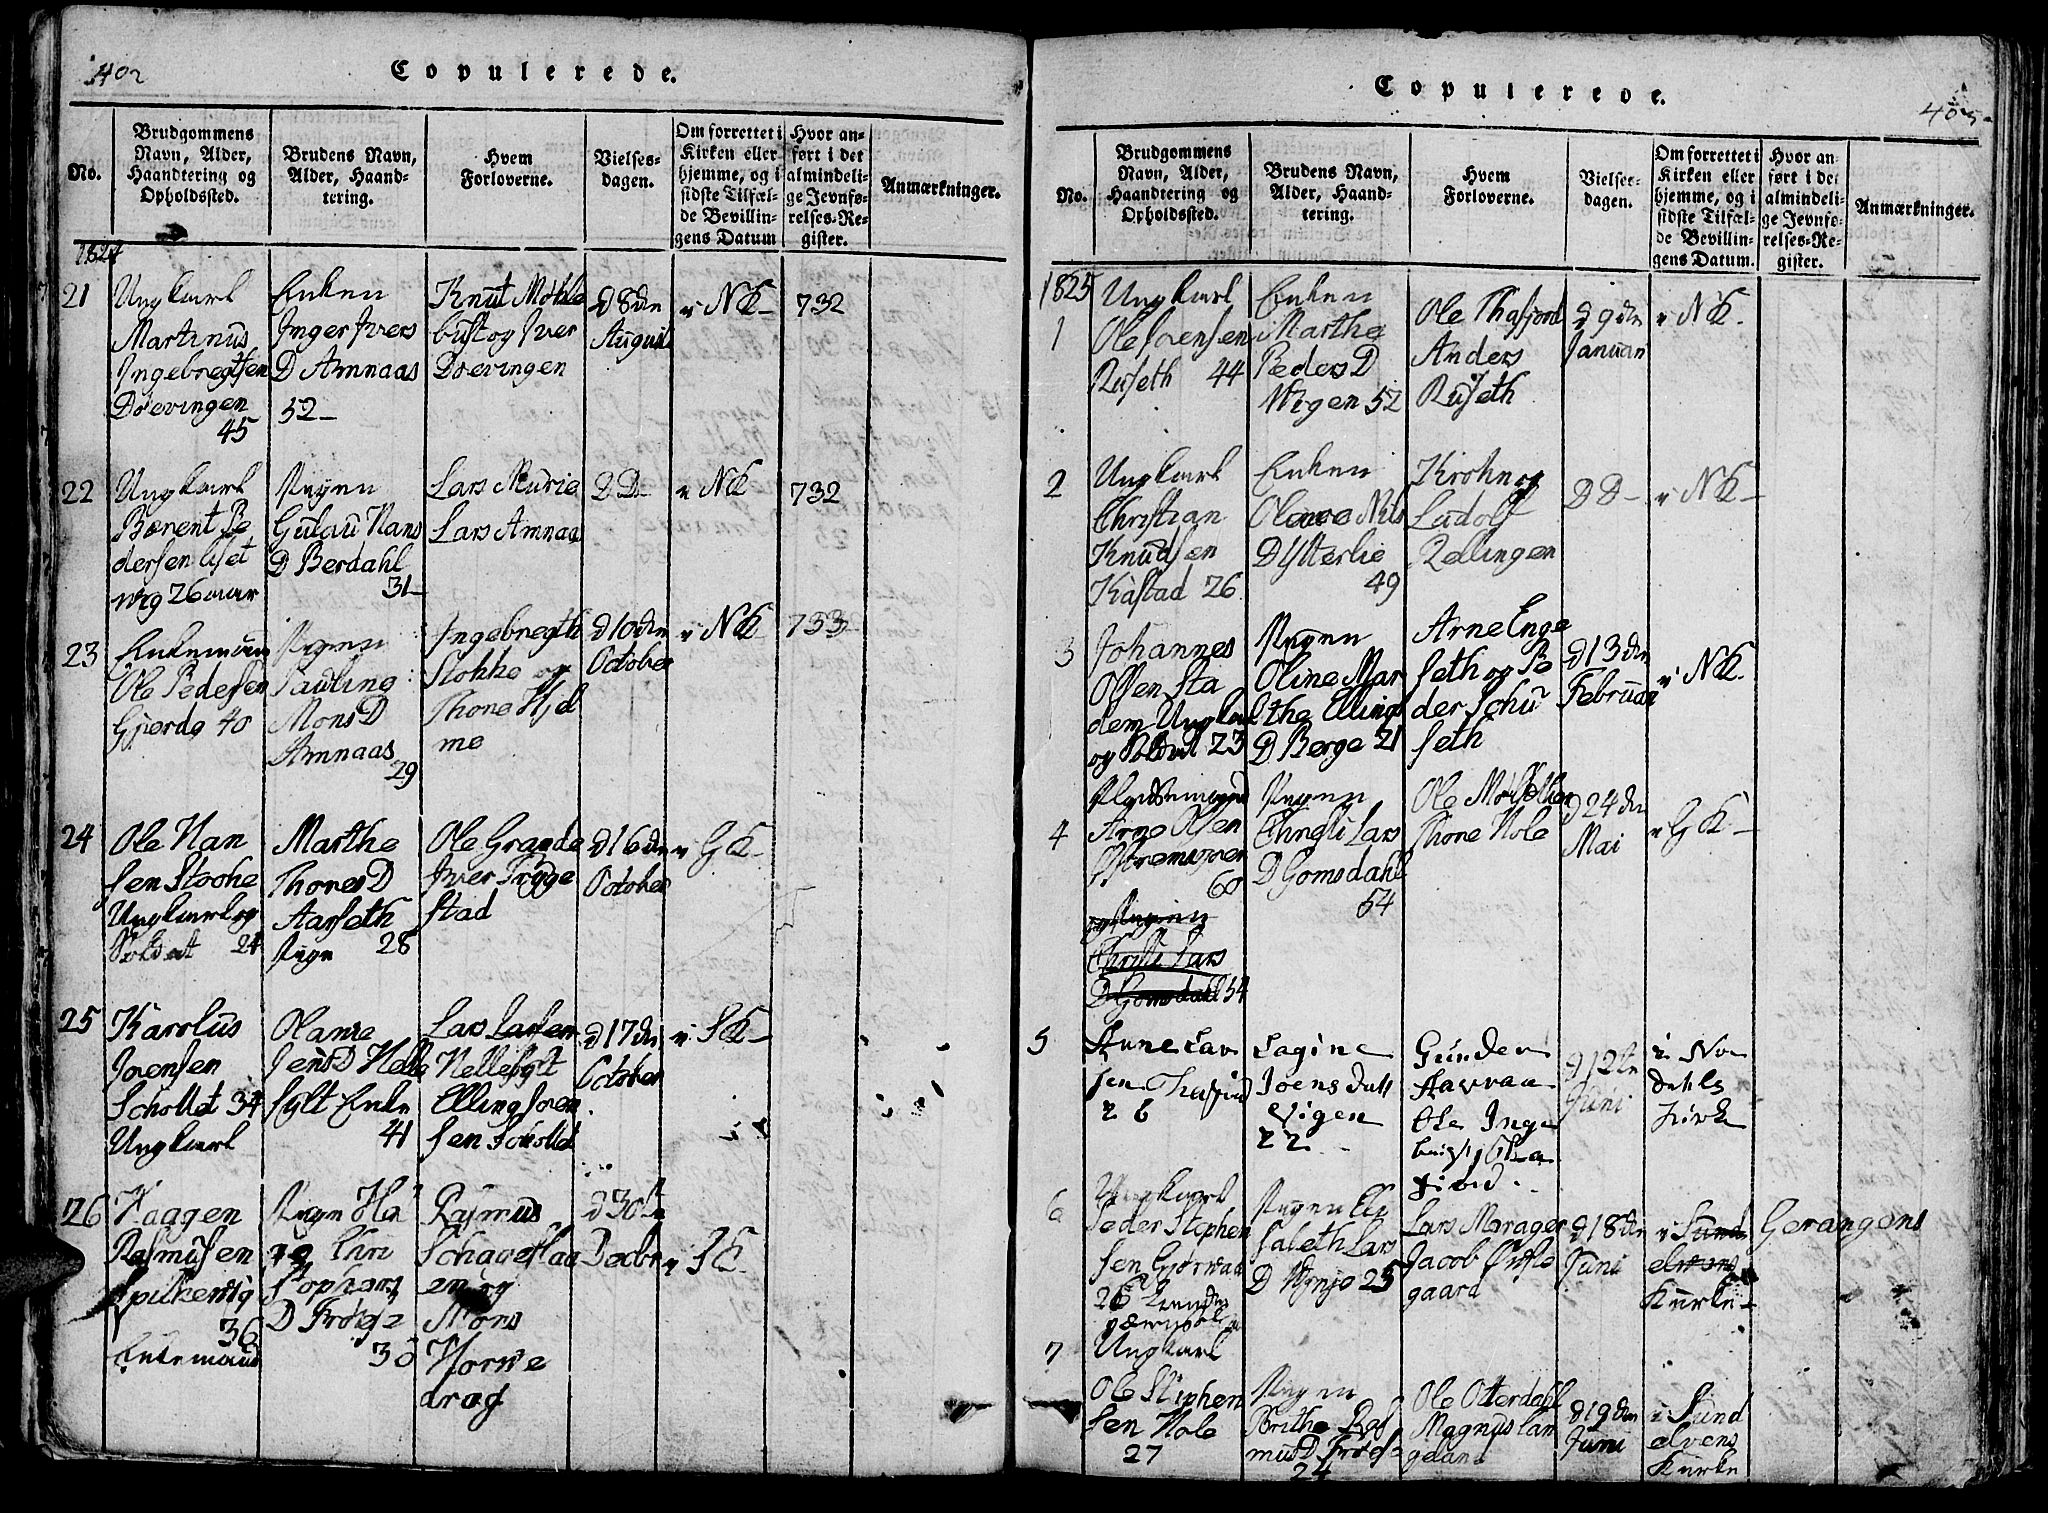 402
Copulerede.
No.
Brudgommens
Navn, Alder,
Haandtering og
Opholdssted.
Brudens Navn,
Alder, Haand-
tering.
Hvem
Forloverne.
Vielses-
dagen.
Om forrettet i
Kirken eller
hjemme, og i
sidste Tilfæl-
de Bevillin-
gens Datum
Hvor an-
ført i det
almindeli-
ge Jevnfø-
relses-Re-
gister.
Anmærkninger.
1824
21
Ungkarl
Martinus
Ingebregtsen
Doevingen
45
Enken
Inger Ivers
D Amnaas
52
Knut Møhle
bust og Iver
Doevingen
d 8de
August
i NK
732
22
Ungkarl
Bærent Pe
dersen
wig 26 aar
Pigen
Gulau Hans
D Berdahl
31
Lars Murie
Lars Amnaa
D D
i NK
732
23
Enkemand
Ole Pedersen
Gjerde 40
Pigen
Pauline
Mons D
Amnaas
29
Ingebregth
Stokke og
Thore Hjel
me
d 10de
October
i NK
733
24
Ole Han
sen Stoche
Ungkarl og
Soldat 24
Marthe
Thores D
Aarseth
Pige 28
Ole Grande
Iver Tryge
stad
d 16de
October
i GK
25
Karolus
Joensen
Schottet 34
Ungkarl
Olane
Jens D Helle
sylt Enke
41
Lars Larsen
Hellesylt
Elling Joen
sen
d 17de
October
i SK
26
Haagen
Rasmusen
Spilkevig
36
Enkemand
Pigen
Stophers
D Frøise
30
Rasmus
Mons
Horne
drag
d 30te
Decbr
i SK
Copulerede.
405
No.
Brudgommens
Navn, Alder,
Haandtering og
Opholdssted.
Brudens Navn,
Alder, Haand-
tering.
Hvem
Forloverne.
Vielses-
dagen.
Om forrettet i
Kirken eller
hjemme, og i
sidste Tilfæl-
de Bevillin-
gens Datum.
Hvor an-
ført i det
almindeli-
ge Jevnfø-
relses-Re-
gister.
Anmærkninger.
1825
1
Ungkarl
Ole Joensen
Ruseth 44
Enken
Marthe
Peders D
Wigen 52
Ole Thafjord
Anders
Ruseth
d 9de
Januari
i NK
2
Ungkarl
Christian
Knudsen
Kastad 26
Enken
Olave Nils
D Ytterlie
49
Krohn og
Ludolf
Rellingen
D D
i NK
3
Johannes
Olsen Sta
dem Ungkarl
og Soldat 23
Pigen
Oline Mar
the Ellings
D Berge 21
Arne Enge
seth og Pe
der Schu
seth
d 13de
Februari
i NK
4
Pladsemand
Arne Olsen
60
og Pigen
Christi Lars
D Gomsdahl 54
Pigen
Christi Lars
D Gomsdahl
54
Ole
Thore Hole
d 24de
Mai
i GK
5
26
Lagine
Joens Datt
Vigen
22
Gunder
Ole Inge
d 12te
Juni
i Nor
dahls
Kirke
6
Ungkarl
Peder Stephen
sen
26
Pigen Eli
sabeth Lars
D 25
Lars Marager
Jacob
gaard
d 18de
Juni
i Sund
elvens
Kirke
Gerangens
7
Ungkarl
Ole Stephen
sen Hole
27
Pigen
Brithe Ras
mus D Frøise
24
Ole Otterdahl
Magnus Lan
geland
d 19de
Juni
i Sund
elvens
Kirke